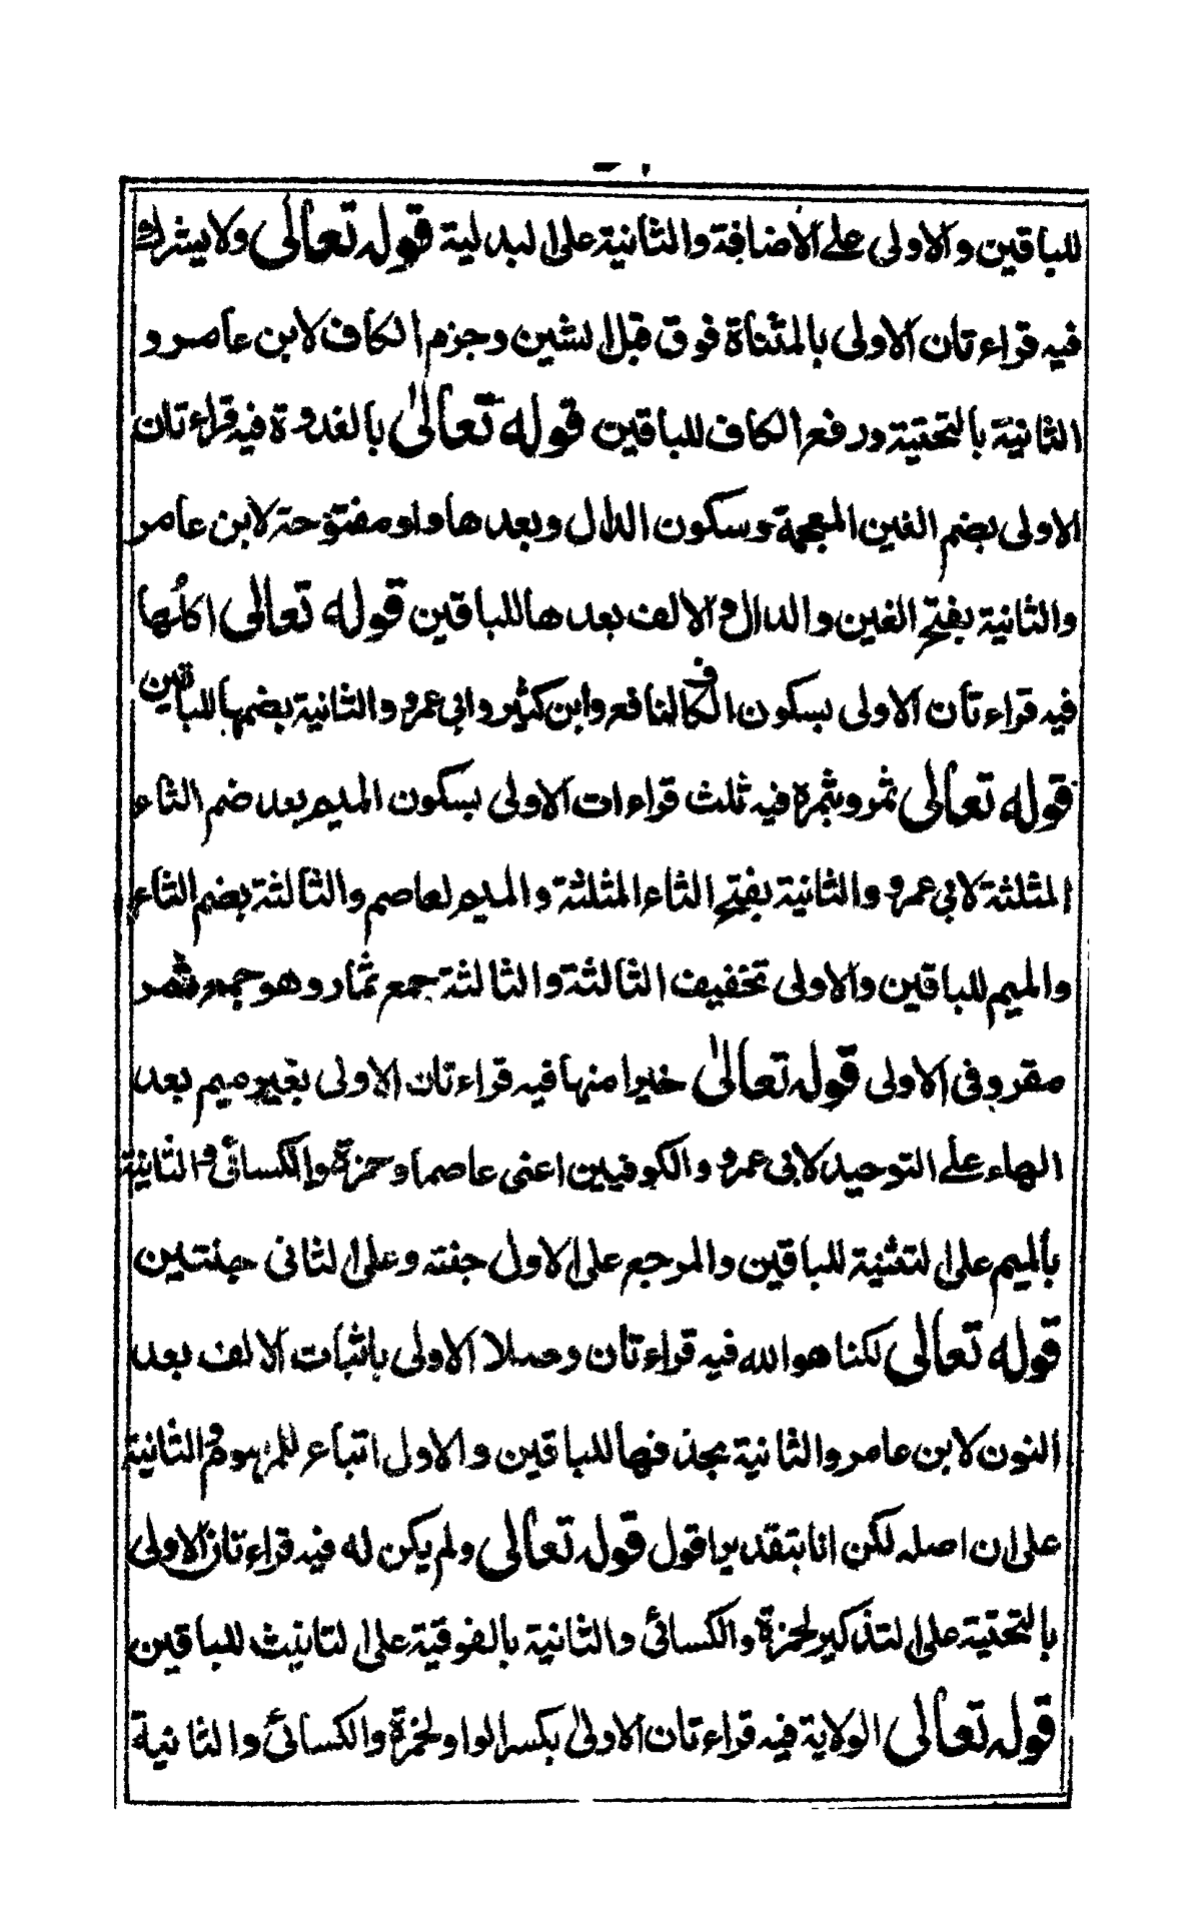 للباقين والاولى على الاضافة والثانية على البدلية قوله تعالى ولا يشرك
فيه قراءتان الاولى بالمثناة فوق قبل الشين وجزم الكاف لابن عامر و
الثانية بالتحتية ورفع الكاف للباقين قوله تعالى بالغدوة فيه قراءتان
الاولى بضم الغين المعجمة وسكون الدال وبعدها واو مفتوحة لابن عامر
والثانية بفتح الغين والدال والالف بعدها للباقين قوله تعالى اكلها
فيه قراءتان الاولى بسكون الكاف لنافع وابن كثير وابي عمرو والثانية بضمها للباقين
قوله تعالى ثمر وبثمرة فيه ثلث قراءات الاولى بسكون الميم بعد ضم الثاء
المثلثة لابي عمرو والثانية بفتح الثاء المثلثة والميم لعاصم والثالثة بضم الثاء
والميم للباقين والاولى تخفيف الثالثة والثالثة جمع ثمار وهو جمع ثمر
مقرو في الاولى قوله تعالى خيرا منها فيه قراءتان الاولى بغير ميم بعد
الهاء على التوحيد لابي عمرو والكوفيين اعنى عاصما وحمزة والكسائي والثانية
بالميم على التثنية للباقين والمرجع على الاول جنته وعلى الثاني جنتين
قوله تعالى لكنا هو الله فيه قراءتان وصلا الاولى باثبات الالف بعد
النون لابن عامر والثانية بحذفها للباقين والاول اتباع للمرسوم والثانية
على ان اصله لكن انا بتقدير اقول قوله تعالى ولم يكن له فيه قراءتان الاولى
بالتحتية على التذكير لحمزة والكسائي والثانية بالفوقية على التانيث للباقين
قوله تعالى الولاية فيه قراءتان الاولى بكسر الواو لحمزة والكسائي والثانية